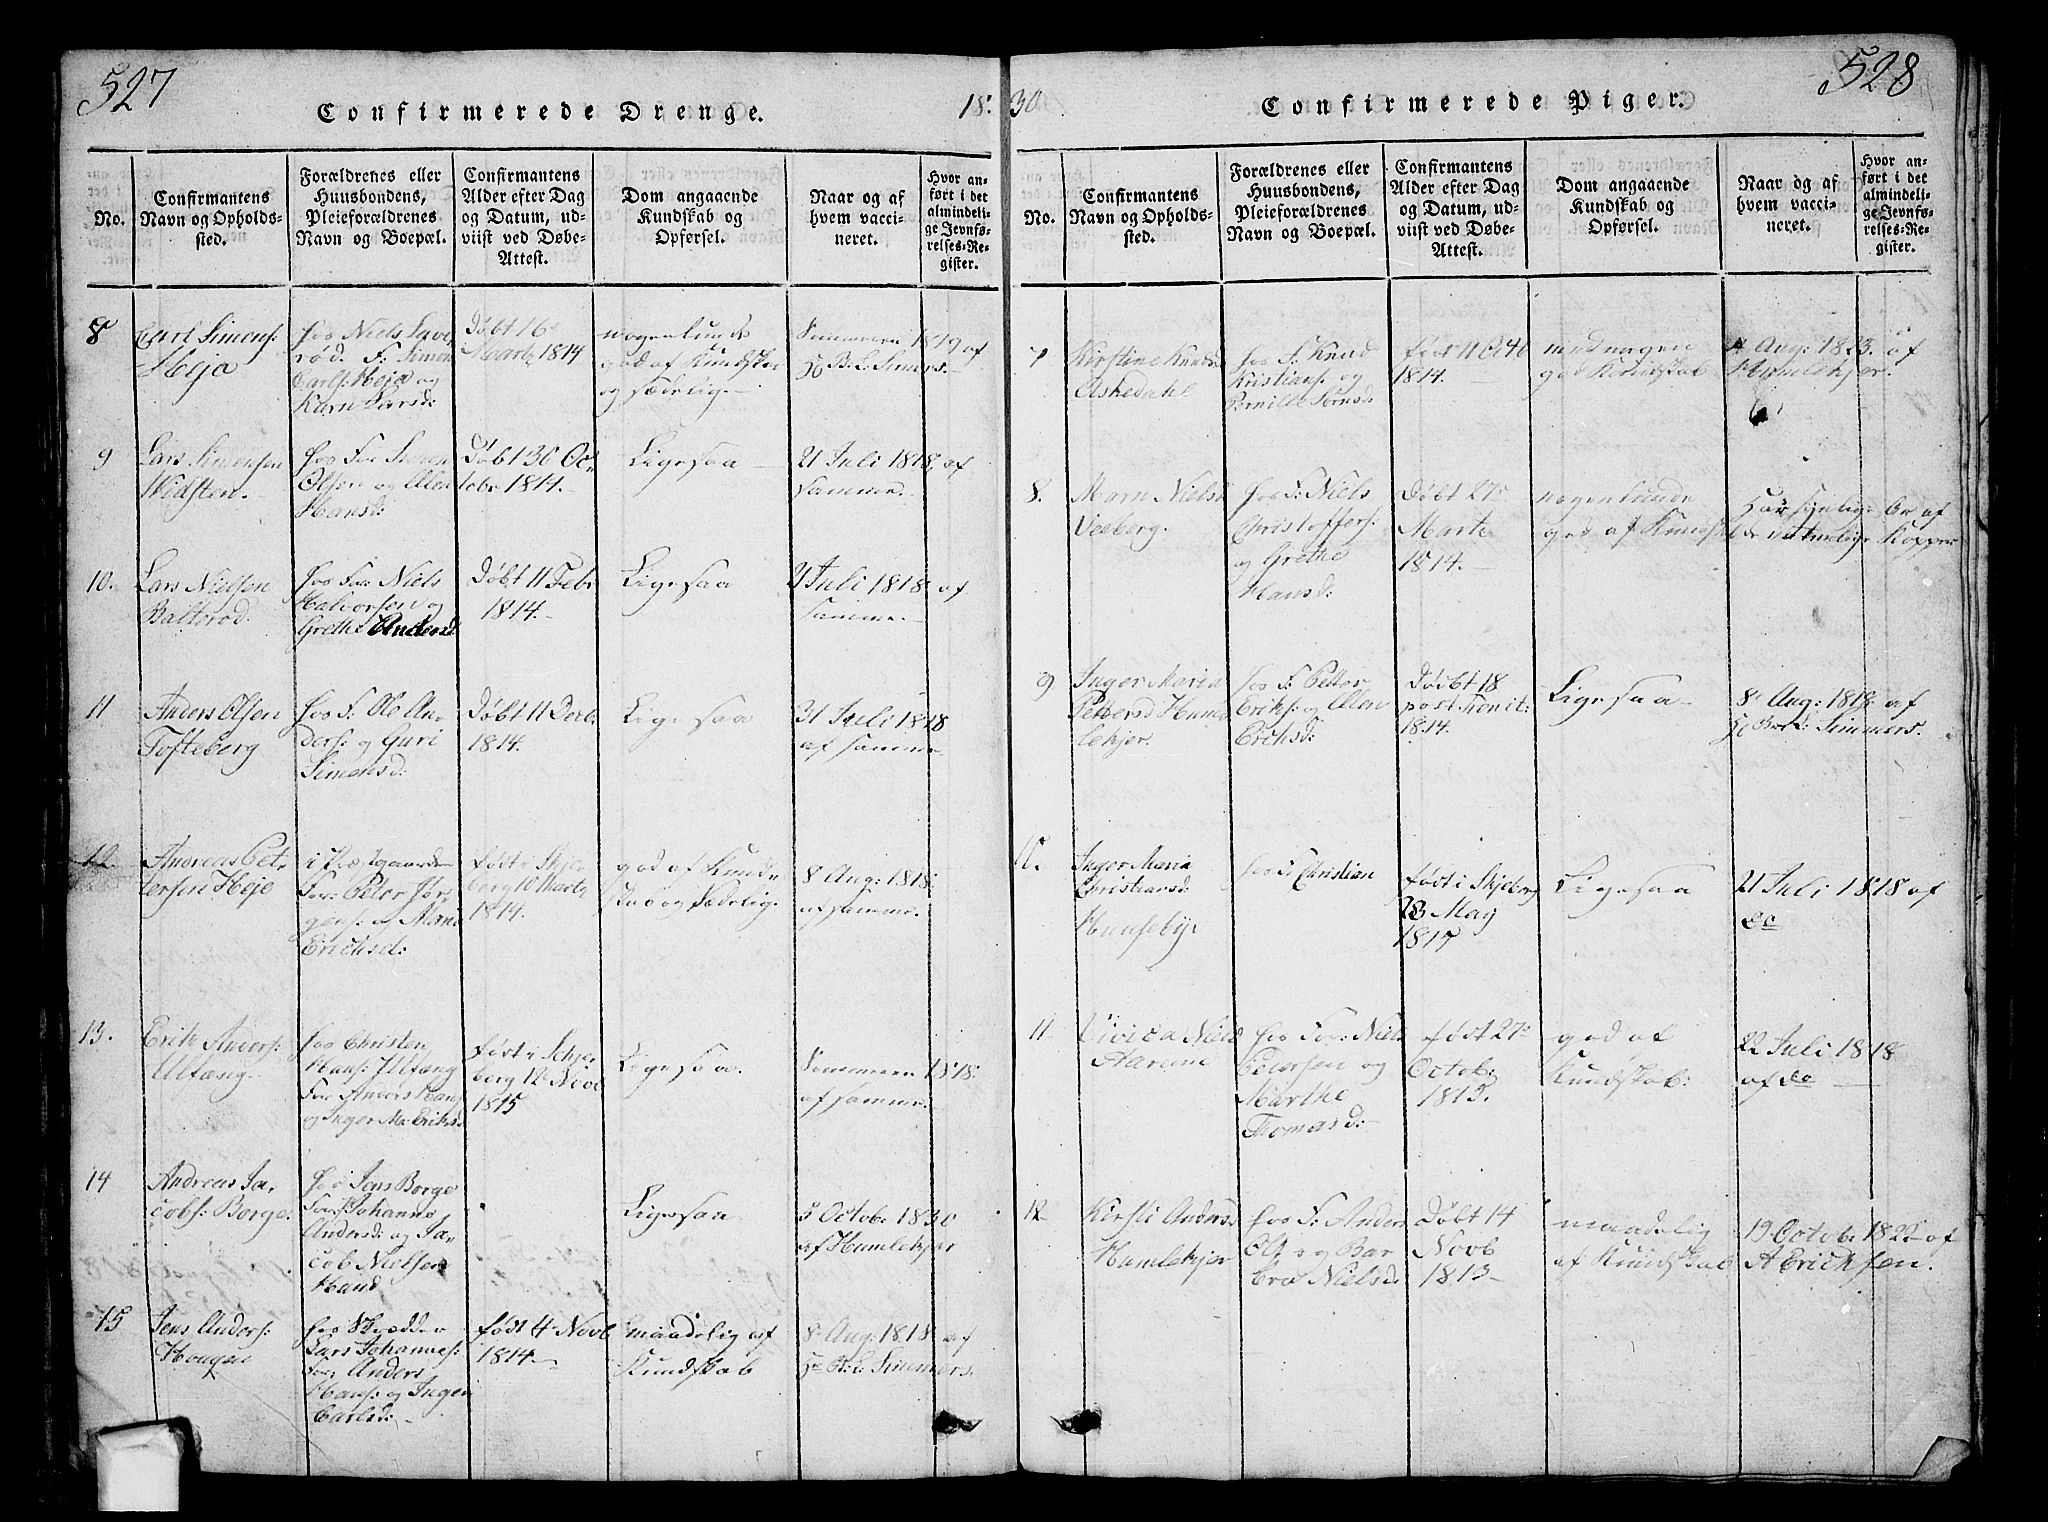 527
Confirmerede Drenge.
18
No.
Confirmantens
Navn og Opholds-
sted.
Forældrenes eller
Huusbondens,
Pleieforældrenes
Navn og Boepæl.
Confirmantens
Alder efter Dag
og Datum, ud-
viist ved Døbe-
Attest.
Dom angaaende
Kundskab og
Opførsel.
Naar og af
hvem vacci-
neret.
Hvor an-
ført i det
almindeli-
ge Jevnfø-
relses-Re-
gister.
8
Carl Simens:
Heja
hos Niels
rød. F: Simen
Carls: Heja og
Karn Larsd:
Døbt 16
Marts 1814
nogenlunde
god af Kundskab
og sædelig.
Sommeren 1819 af
B. L. Simers.
9
Lars Simensen
Vidsten.
hos For
Olsen og Ellen
Hansd:
Døbt 30 Oc-
tobr 1814.
Ligesaa
21 Juli 1818, af
samme.
10.
Lars Nielsen
Baltorød.
hos For: Niels
Halvorsen og
Grethe Andersd:
Døbt 11 Febr
1814.
Ligesaa
21 Juli 1818 af
samme.
11
Anders Olsen
Tofteberg
hos F: Ole An-
ders: og Guri
Simensd:
Døbt 11 Decbr
1814.
Ligesaa
31 Juli 1818
af samme.
12.
Andreas Pet-
tersen Heje
i Præstgaarden
For: Peter Jør-
gens: og Maria
Erichsd:
født i Skje-
berg 10 Marts
1814.
god af Kund-
skab og Sædelig.
8 Aug: 1818
af samme.
13.
Erik Anders:
Ulfæng.
hos Christen
Hans: Ulfæng
For Anders Hans
og Inger Ma: Eriksd
født i Skje-
berg 12 Nov
1815
Ligesaa
Sommeren 1818.
af samme.
14
Andreas Ja-
cobs: Borge.
hos Jens Borge
For: Johanne
Andersd: og Ja-
cob Nielsen
Haud
Ligesaa
5 Octobr 1830
af Humlekjær
15
Jens Anders:
Hougen
hos Skrædder
Lars Johannes:
For Anders
Hans: og Inger
Carlsd:
født 4 Novb
1814
maadelig af
Kundskab
8 Aug: 1818 af
B. L. Simmers.
528
30
Confirmerede Piger.
No.
Confirmantens
Navn og Opholds-
sted.
Forældrenes eller
Huusbondens,
Pleieforældrenes
Navn og Boepæl.
Confirmantens
Alder efter Dag
og Datum, ud-
viist ved Døbe-
Attest.
Dom angaaende
Kundskab og
Opførsel.
Naar og af
hvem vacci-
neret.
Hvor an-
ført i det
almindeli-
ge Jevnfø-
relses-Re-
gister.
7
Kirstine Knudsd
Askedahl
hos F: Knud
Kristians: og
Pernille Sørnsd:
født 11
1814.
med nogen
god Kundskab
4 Aug: 1823. af
Humlekjer.
8.
Marn Nielsd
Veeberg.
hos F: Niels
Christoffers:
og Grethe
Hansd:
Døbt 27
Marts
1814.
nogenlunde
god af Kundsk
Har synlige Ar af
de naturlige Kopper
9
Inger Maria
Pettersd Hum-
lekjer.
hos F: Petter
Eriks: og Ellen
Erichsd:
Døbt 18
post Trinit:
1814.
Ligesaa
8 Aug: 1818 af
B. L. Simmers.
10.
Inger Maria
Christiansd:
Hunsebye
hos F: Christian
født i Skjeberg
23 May
1815
Ligesaa
21 Juli 1818 af
do
11
Vivica Nielsd
Aarene
hos For: Niels
Petersen og
Marthe
Thomasd:
født 27
Octobr
1813.
god af
Kundskab:
22 Juli 1818
af do
12
Kirsti Andersd
Humlekjer
hos F: Anders
Ols og Bar-
bra Nielsd
Døbt 14
Novb
1813
maadelig
af Kundskab
19 Octob: 1822 af
A Erichsen.